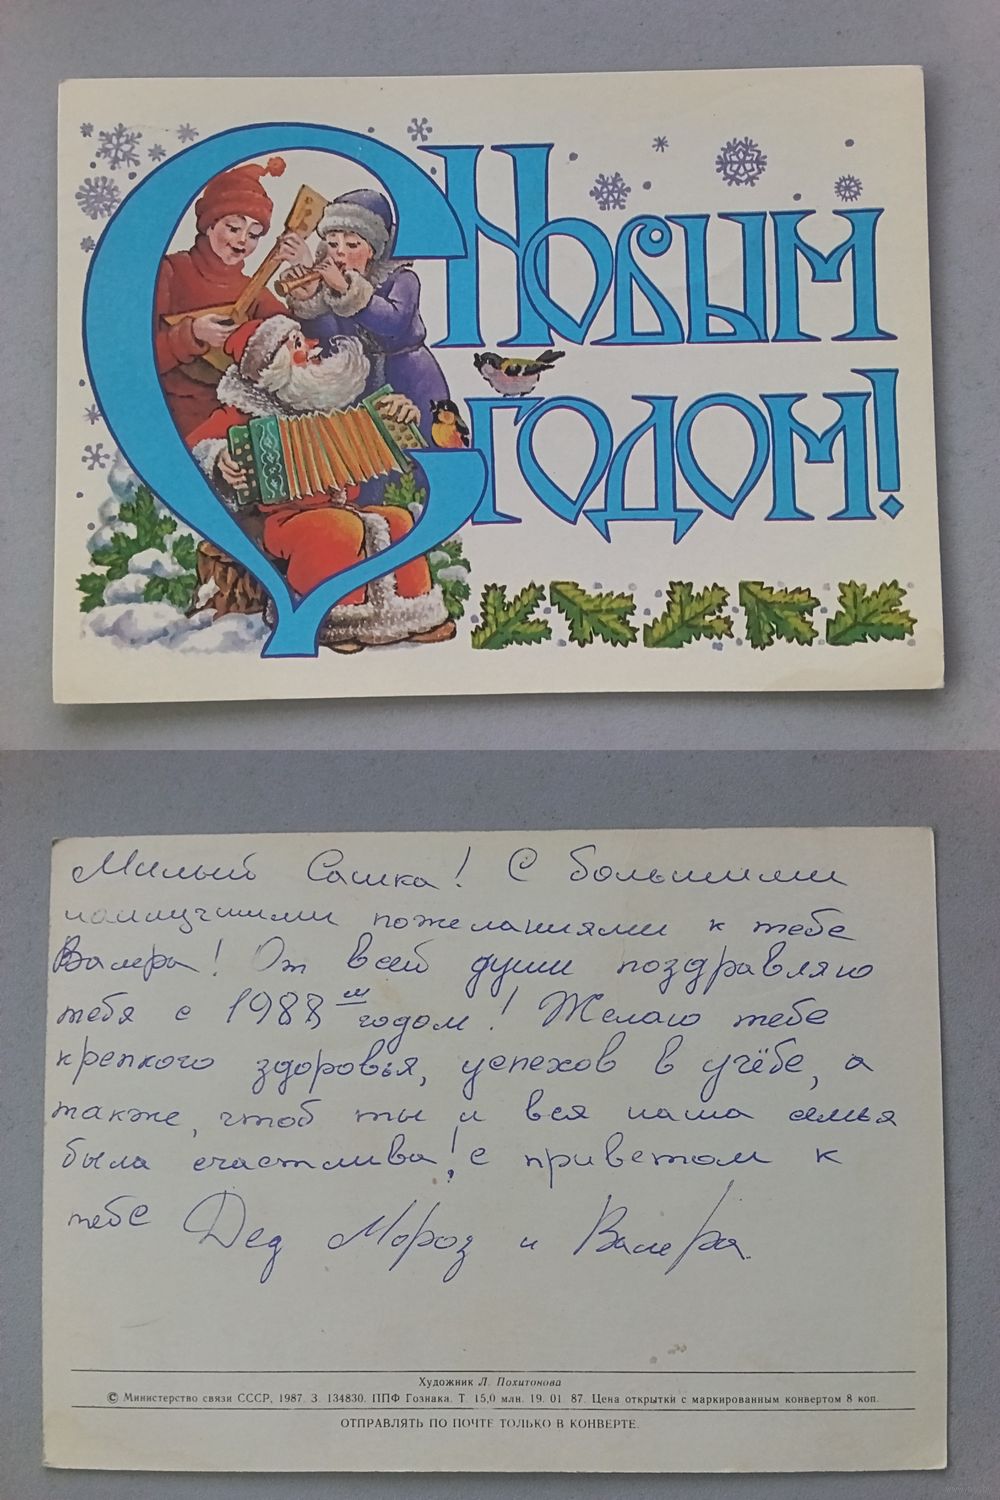 С НОВЫМ
ГОДОМ!
Милый Сашка! С большими
наилучшими пожеланиями к тебе
Валера! От всей души поздравляю
тебя с 1988 м годом! Желаю тебе
крепкого здоровья, успехов в учёбе, а
также, чтоб ты и вся наша семья
была счастлива! с приветом к
тебе Дед Мороз и Валера.
Художник Л. Похитонова
© Министерство связи СССР, 1987. З. 134830. ППФ Гознака. Т. 15,0 млн. 19. 01. 87. Цена открытки с маркированным конвертом 8 коп.
ОТПРАВЛЯТЬ ПО ПОЧТЕ ТОЛЬКО В КОНВЕРТЕ.